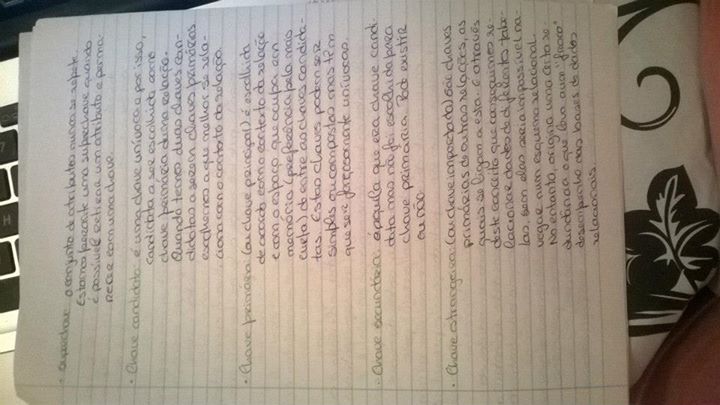 • Superchave: o conjunto de atributos nunca se repete.
Estamos perante uma superchave quando
é possível retirar-se um atributo e perma-
necer com uma chave.
• Chave candidata: é uma chave unívoca e por isso,
candidata a ser escolhida como
chave primária duma relação.
Quando temos duas chaves can-
didatas a serem chaves primárias
escolhemos a que melhor se rela-
ciona com o contexto da relação.
• Chave primária (ou chave principal) é escolhida
de acordo com o contexto da relação
e com o espaço que ocupa em
memória (preferência pela mais
curta) de entre as chaves candida-
tas. Estas chaves podem ser
simples ou compostas mas têm
que ser forçosamente unívocas.
• Chave secundária: aquela que era chave candi-
data mas não foi escolhida para
chave primária. Pode existir
ou não.
• Chave estrangeira (ou chave importada) São chaves
primárias de outras relações, as
quais se ligam a esta. É através
deste conceito que conseguimos re-
lacionar dados de diferentes tabe-
las. Sem elas seria impossível na-
vegar num esquema relacional.
No entanto, origina uma certa re-
dundância o que leva a um "fraco"
desempenho das bases de dados
relacionais.